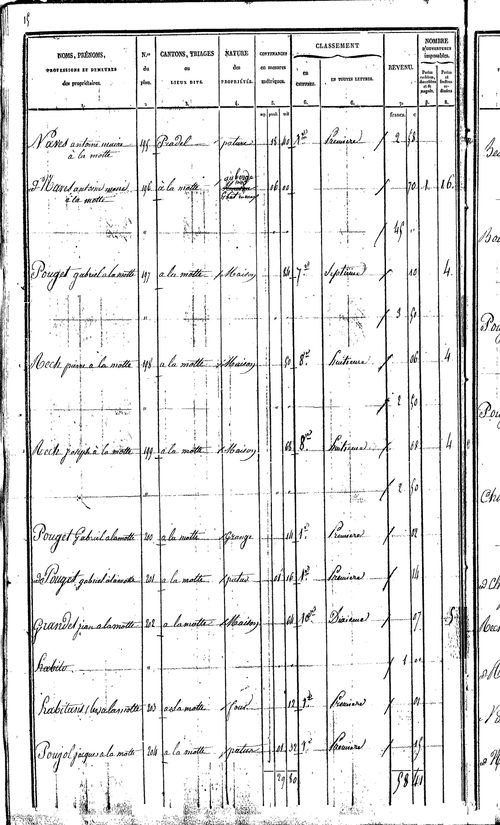 15
NOMS, PRÉNOMS, PROFESSIONS ET DEMEURES des propriétaires. N.os du plan. CANTONS, TRIAGES OU LIEUX DITS. NATURE DES PROPRIÉTÉS. CONTENANCES en mesures métriques. CLASSEMENT REVENU. NOMBRE D'OUVERTURES imposables.
en chiffres. EN TOUTES LETTRES. Portes et fenêtres ordinaires
1. 2. 3. 4. 5. 6. 7. 8. 9.
arp perch mèt francs. c
Nares antoine maire à la motte 195 Pradel pature 18 40 1re Première 2 58
d° Nares antoine maire à la motte 196 à la motte auberge 06 00 70 1 16
45 "
Pouget gabriel à la motte 197 a la motte Maison 26 7me Septième 10 4
3 50
Rech pierre à la motte 198 a la motte Maison 50 8me huitième 06 4
2 50
Rech joseph à la motte 199 a la motte Maison 68 8me huitième 08 4
2 50
Pouget Gabriel a la motte 200 a la motte Grange 14 1re Première 02
d° Pouget gabriel à la motte 201 a la motte patus 01 16 1re Première 14
Grandet jean a la motte 202 a la motte Maison 64 10me Dixieme 07 5
1 "
habitans (les) a la motte 203 a la motte four 12 1re Première 01
Poujol jacques a la motte 204 a la motte patus 01 32 1re Première 15
29 50 58 41